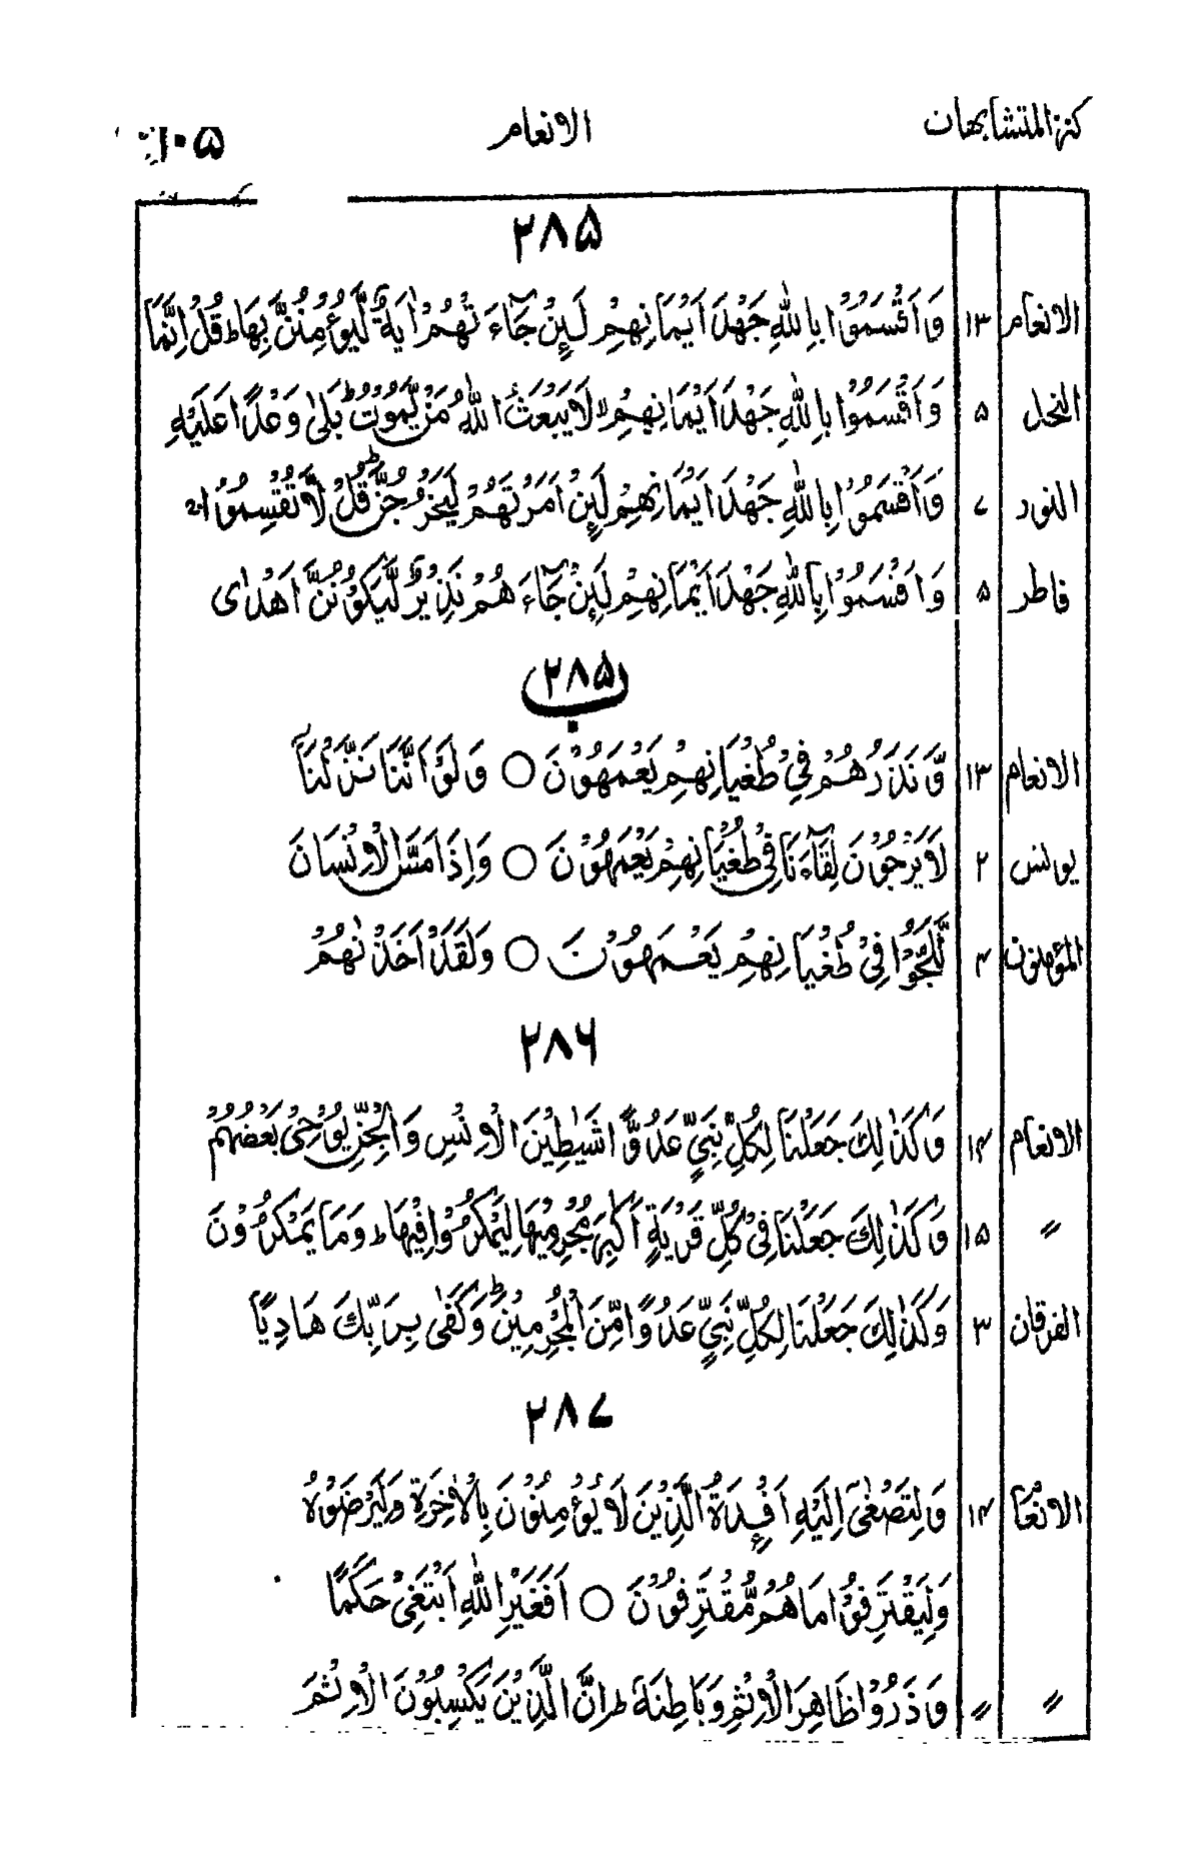 كنز المتشابهات الانعام ۱۰۵
۲۸۵
الانعام ۱۳ وَاَقْسَمُوْا بِاللّٰهِ جَهْدَ اَيْمَانِهِمْ لَىِٕنْ جَآءَتْهُمْ اٰيَةٌ لَّيُؤْمِنُنَّ بِهَا ؕ قُلْ اِنَّمَا
النحل ۵ وَاَقْسَمُوْا بِاللّٰهِ جَهْدَ اَيْمَانِهِمْ ۙ لَا يَبْعَثُ اللّٰهُ مَنْ يَّمُوْتُ ؕ بَلٰى وَعْدًا عَلَيْهِ
النور ۷ وَاَقْسَمُوْا بِاللّٰهِ جَهْدَ اَيْمَانِهِمْ لَىِٕنْ اَمَرْتَهُمْ لَيَخْرُجُنَّ ؕ قُلْ لَّا تُقْسِمُوْا ۚ
فاطر ۵ وَاَقْسَمُوْا بِاللّٰهِ جَهْدَ اَيْمَانِهِمْ لَىِٕنْ جَآءَهُمْ نَذِيْرٌ لَّيَكُوْنُنَّ اَهْدٰى
۲۸۵ ب
الانعام ۱۳ وَّنَذَرُهُمْ فِيْ طُغْيَانِهِمْ يَعْمَهُوْنَ ○ وَلَوْ اَنَّنَا نَزَّلْنَآ
يونس ۲ لَا يَرْجُوْنَ لِقَآءَنَا فِيْ طُغْيَانِهِمْ يَعْمَهُوْنَ ○ وَاِذَا مَسَّ الْاِنْسَانَ
المؤمنون ۴ لَّلَجُّوْا فِيْ طُغْيَانِهِمْ يَعْمَهُوْنَ ○ وَلَقَدْ اَخَذْنٰهُمْ
۲۸۶
الانعام ۱۴ وَكَذٰلِكَ جَعَلْنَا لِكُلِّ نَبِيٍّ عَدُوًّا شَيٰطِيْنَ الْاِنْسِ وَالْجِنِّ يُوْحِيْ بَعْضُهُمْ
〃 ۱۵ وَكَذٰلِكَ جَعَلْنَا فِيْ كُلِّ قَرْيَةٍ اَكٰبِرَ مُجْرِمِيْهَا لِيَمْكُرُوْا فِيْهَا ؕ وَمَا يَمْكُرُوْنَ
الفرقان ۳ وَكَذٰلِكَ جَعَلْنَا لِكُلِّ نَبِيٍّ عَدُوًّا مِّنَ الْمُجْرِمِيْنَ ؕ وَكَفٰى بِرَبِّكَ هَادِيًا
۲۸۷
الانعا ۱۴ وَلِتَصْغٰٓى اِلَيْهِ اَفْـِٕدَةُ الَّذِيْنَ لَا يُؤْمِنُوْنَ بِالْاٰخِرَةِ وَلِيَرْضَوْهُ
وَلِيَقْتَرِفُوْا مَا هُمْ مُّقْتَرِفُوْنَ ○ اَفَغَيْرَ اللّٰهِ اَبْتَغِيْ حَكَمًا
〃 〃 وَذَرُوْا ظَاهِرَ الْاِثْمِ وَبَاطِنَهٗ ؕ اِنَّ الَّذِيْنَ يَكْسِبُوْنَ الْاِثْمَ